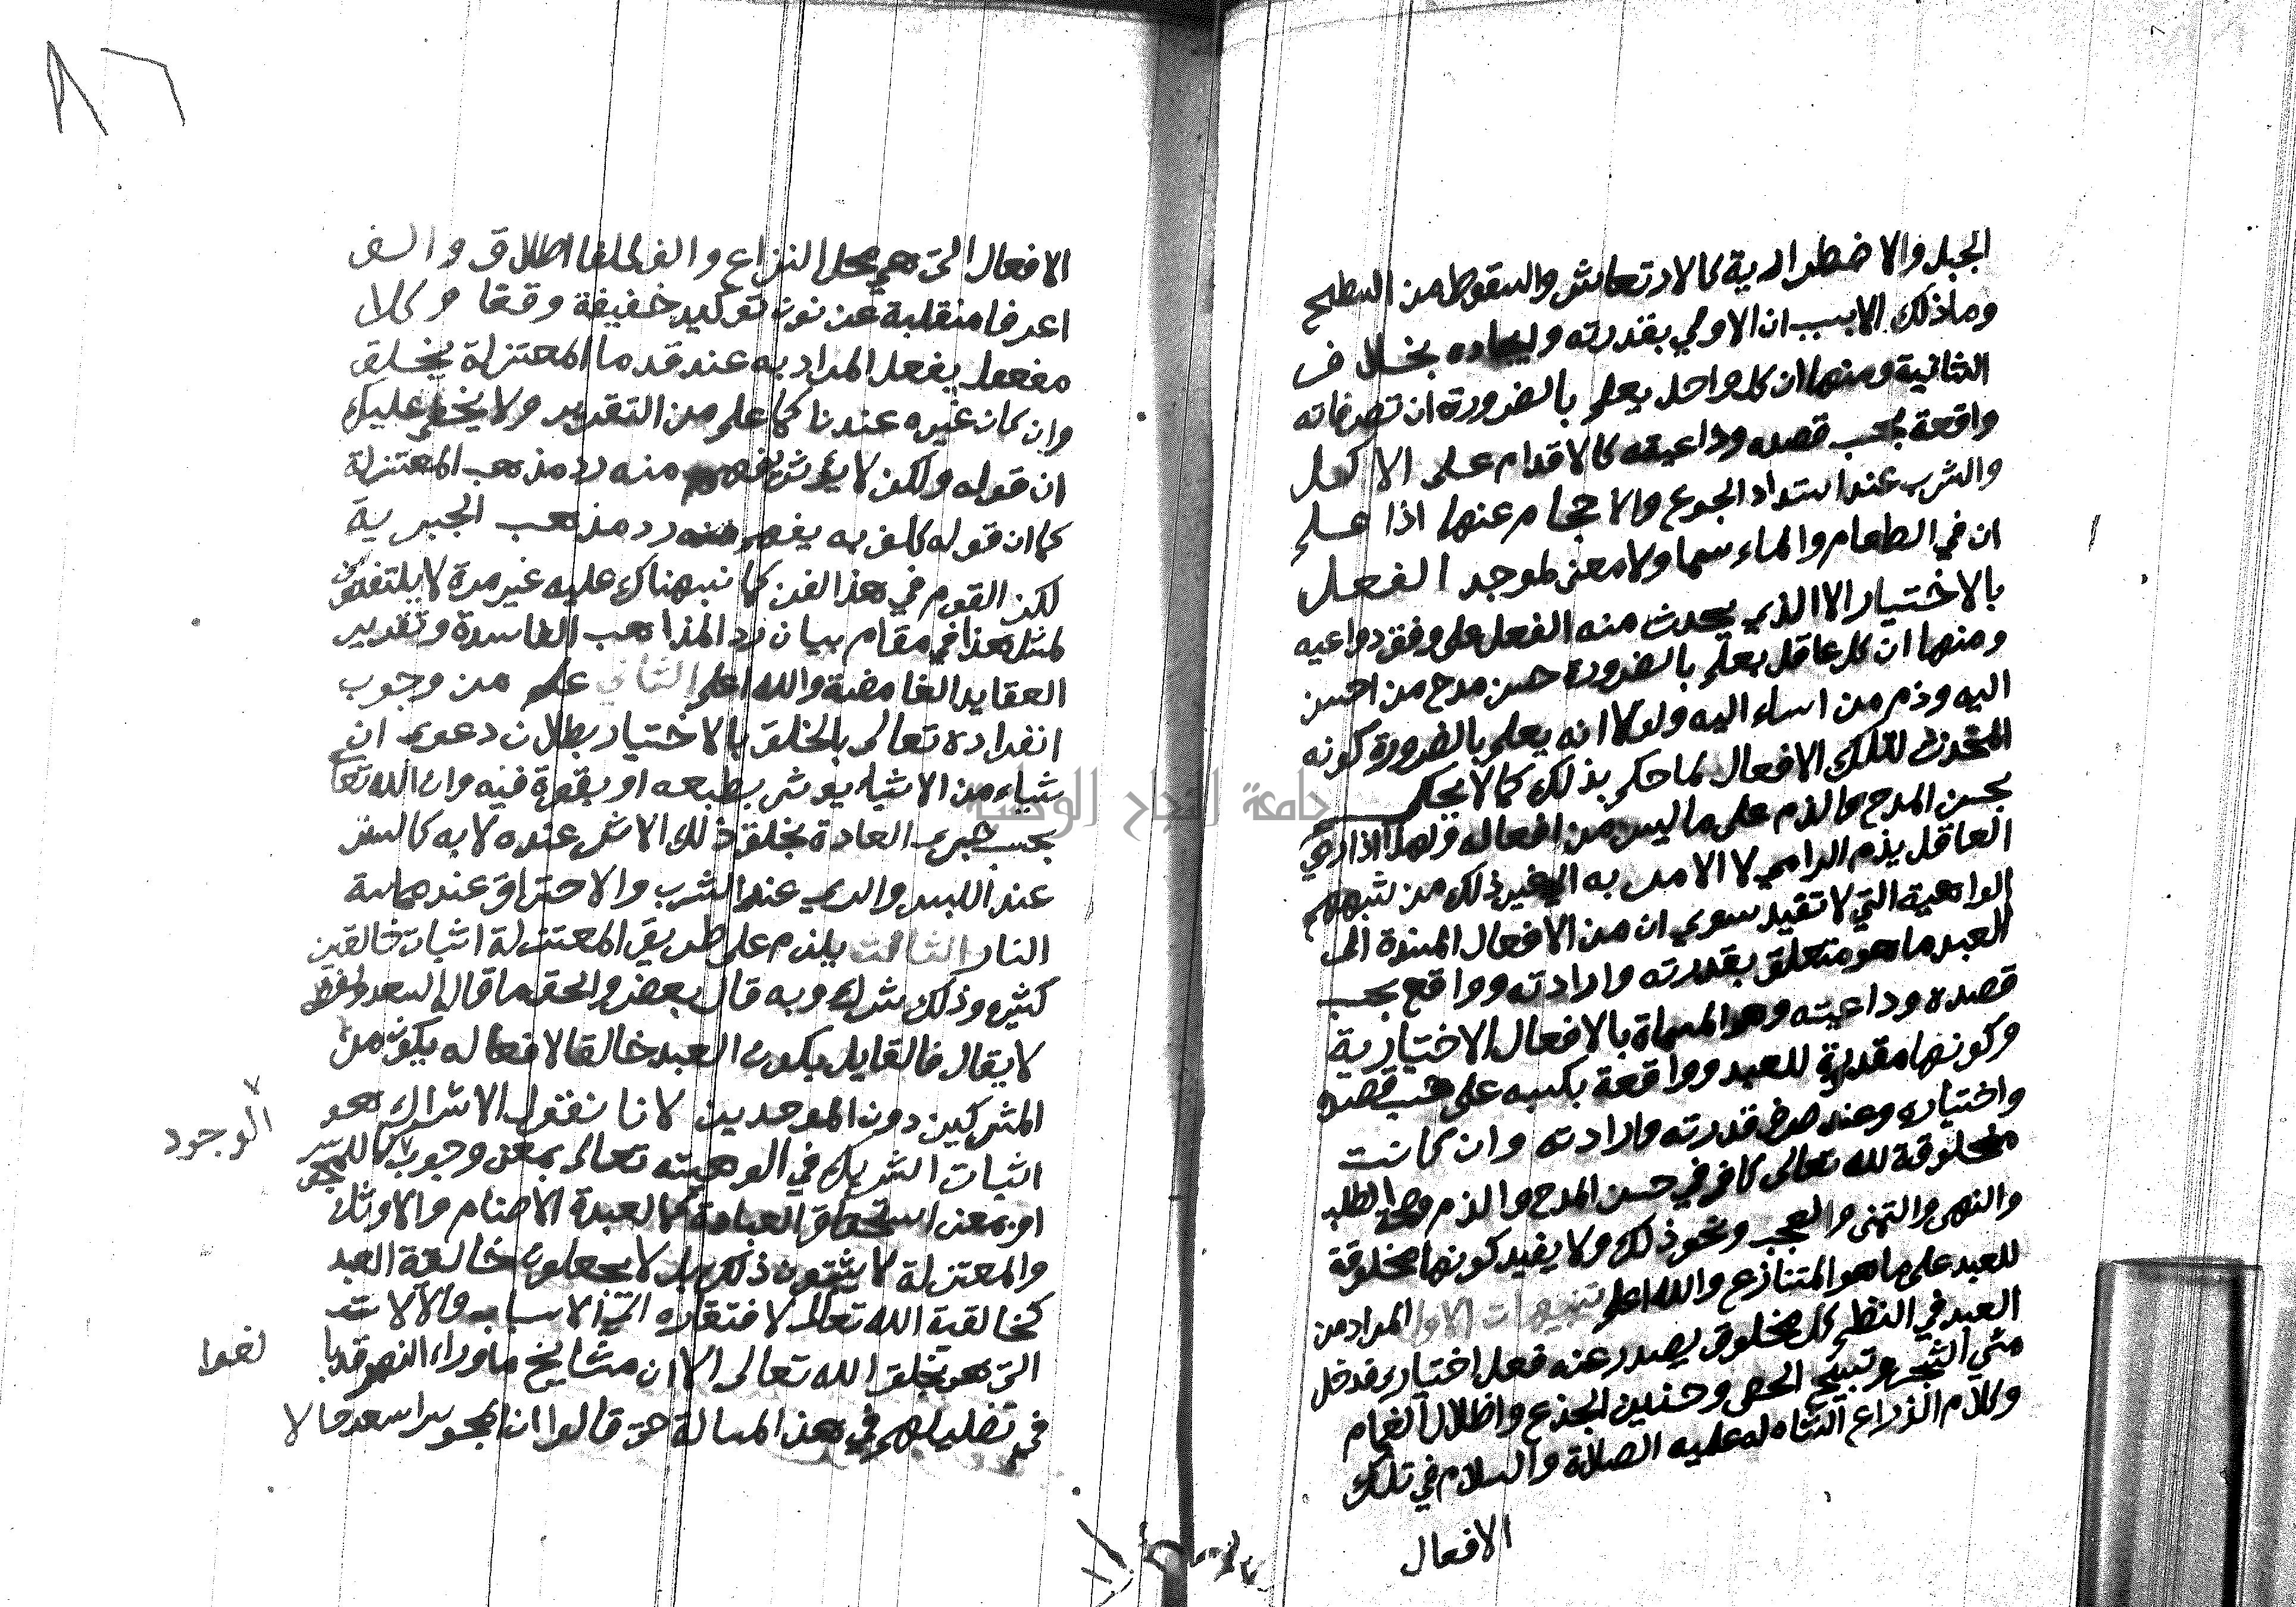 الجبل والاضطرارية كالارتعاش والسقوط من السطح
وما ذلك الا بسبب ان الاولي بقدرته وايجاده بخلاف
الثانية ومنها ان كل واحد يعلم بالضرورة ان تصرفاته
واقعة بحسب قصده وداعيته كالاقدام على الاكل
والشرب عند اشتداد الجوع والاحجام عنها اذا علم
ان في الطعام والماء سما ولا معنى لموجد الفعل
بالاختيار الا الذي يحدث منه الفعل على وفق دواعيه
ومنها ان كل عاقل يعلم بالضرورة حسن مدح من احسن
اليه وذم من اساء اليه ولولا انه يعلم بالضرورة كونه
المحدث لتلك الافعال لما حكم بذلك كما لا يحكم
بحسن المدح والذم على ما ليس من افعاله ولهذا اذا رمي
العاقل يذم الرامي لا الامر به الي غير ذلك من شبههم
الواهية التي لا تفيد سوي ان من الافعال المسندة الى
العبد ما هو متعلق بقدرته وارادته وواقع بحسب
قصده وداعيته وهو المسماة بالافعال الاختيارية
وكونها مقدرة للعبد وواقعة بكسبه على حسب قصده
واختياره وعند صرف قدرته وارادته وان كانت
مخلوقة لله تعالى كاف في حسن المدح والذم وصحة الطلب
والنهى والتمنى والعجب ونحو ذلك ولا يفيد كونها مخلوقة
للعبد على ما هو المتنازع والله اعلم تنبيهات الاول المراد من
العبد في النظم كل مخلوق يصدر عنه فعل اختياري فدخل
مشي الشجر وتسبيح الحصى وحنين الجذع واظلال الغمام
وكلام الذراع الشاة له عليه الصلاة والسلام في تلك
الافعال
٨٦
الافعال التي هي محل النزاع والف لملفا اطلاق والف
اعرفا منقلبة عن نون توكيد خفيفة وقفا وكلا
مفعول يفعل المراد به عند قدما المعتزلة يخلق
وان كان غيره عندنا كما علم من التقدير ولا يخفى عليك
ان قوله ولكن لا يؤثر يفهم منه رد مذهب المعتزلة
كما ان قوله كلف به يفهم منه رد مذهب الجبرية
لكن القوم في هذا الفن كما نبهناك عليه غير مرة لا يلتفتون
لمثل هذا في مقام بيان رد المذاهب الفاسدة وتقدير
العقايد الغامضة والله اعلم الثاني علم من وجوب
انفراده تعالى بالخلق بالاختيار بطلان دعوى ان
شياء من الاشياء يوثر بطبعه او بقوة فيه وان الله تعا
بحسب جرى العادة بخلق ذلك الاثر عنده لا به كالستر
عند اللبس والري عند الشرب والاحتراق عند مماسة
النار الثالث يلزم على طريق المعتزلة اثبات خالقين
كثيره وذلك شرك وبه قال بعض والحق ما قال السعد ولفظه
لا يقال فالقايل بكون العبد خالقا لافعاله يكون من
المشركين دون الموحدين لانا نقول الاشراك هو
اثبات الشريك في الوهيته تعالى بمعنى وجوب كاللمجوس
الوجود
او بمعنى استحقاق العبادة كما لعبدة الاصنام والاوثان
والمعتزلة لا يثبتون ذلك بل لا يجعلون خالقة العبد
كخالقية الله تعالى لافتقاره الي الاسباب والآلات
التي هو بخلق الله تعالى الا ان مشايخ ما وراء النهر قد با
لغوا
في تضليلهم في هذ المسالة حتى قالوا ان المجوس اسعد حالا
جامعة النجاح الوطنية